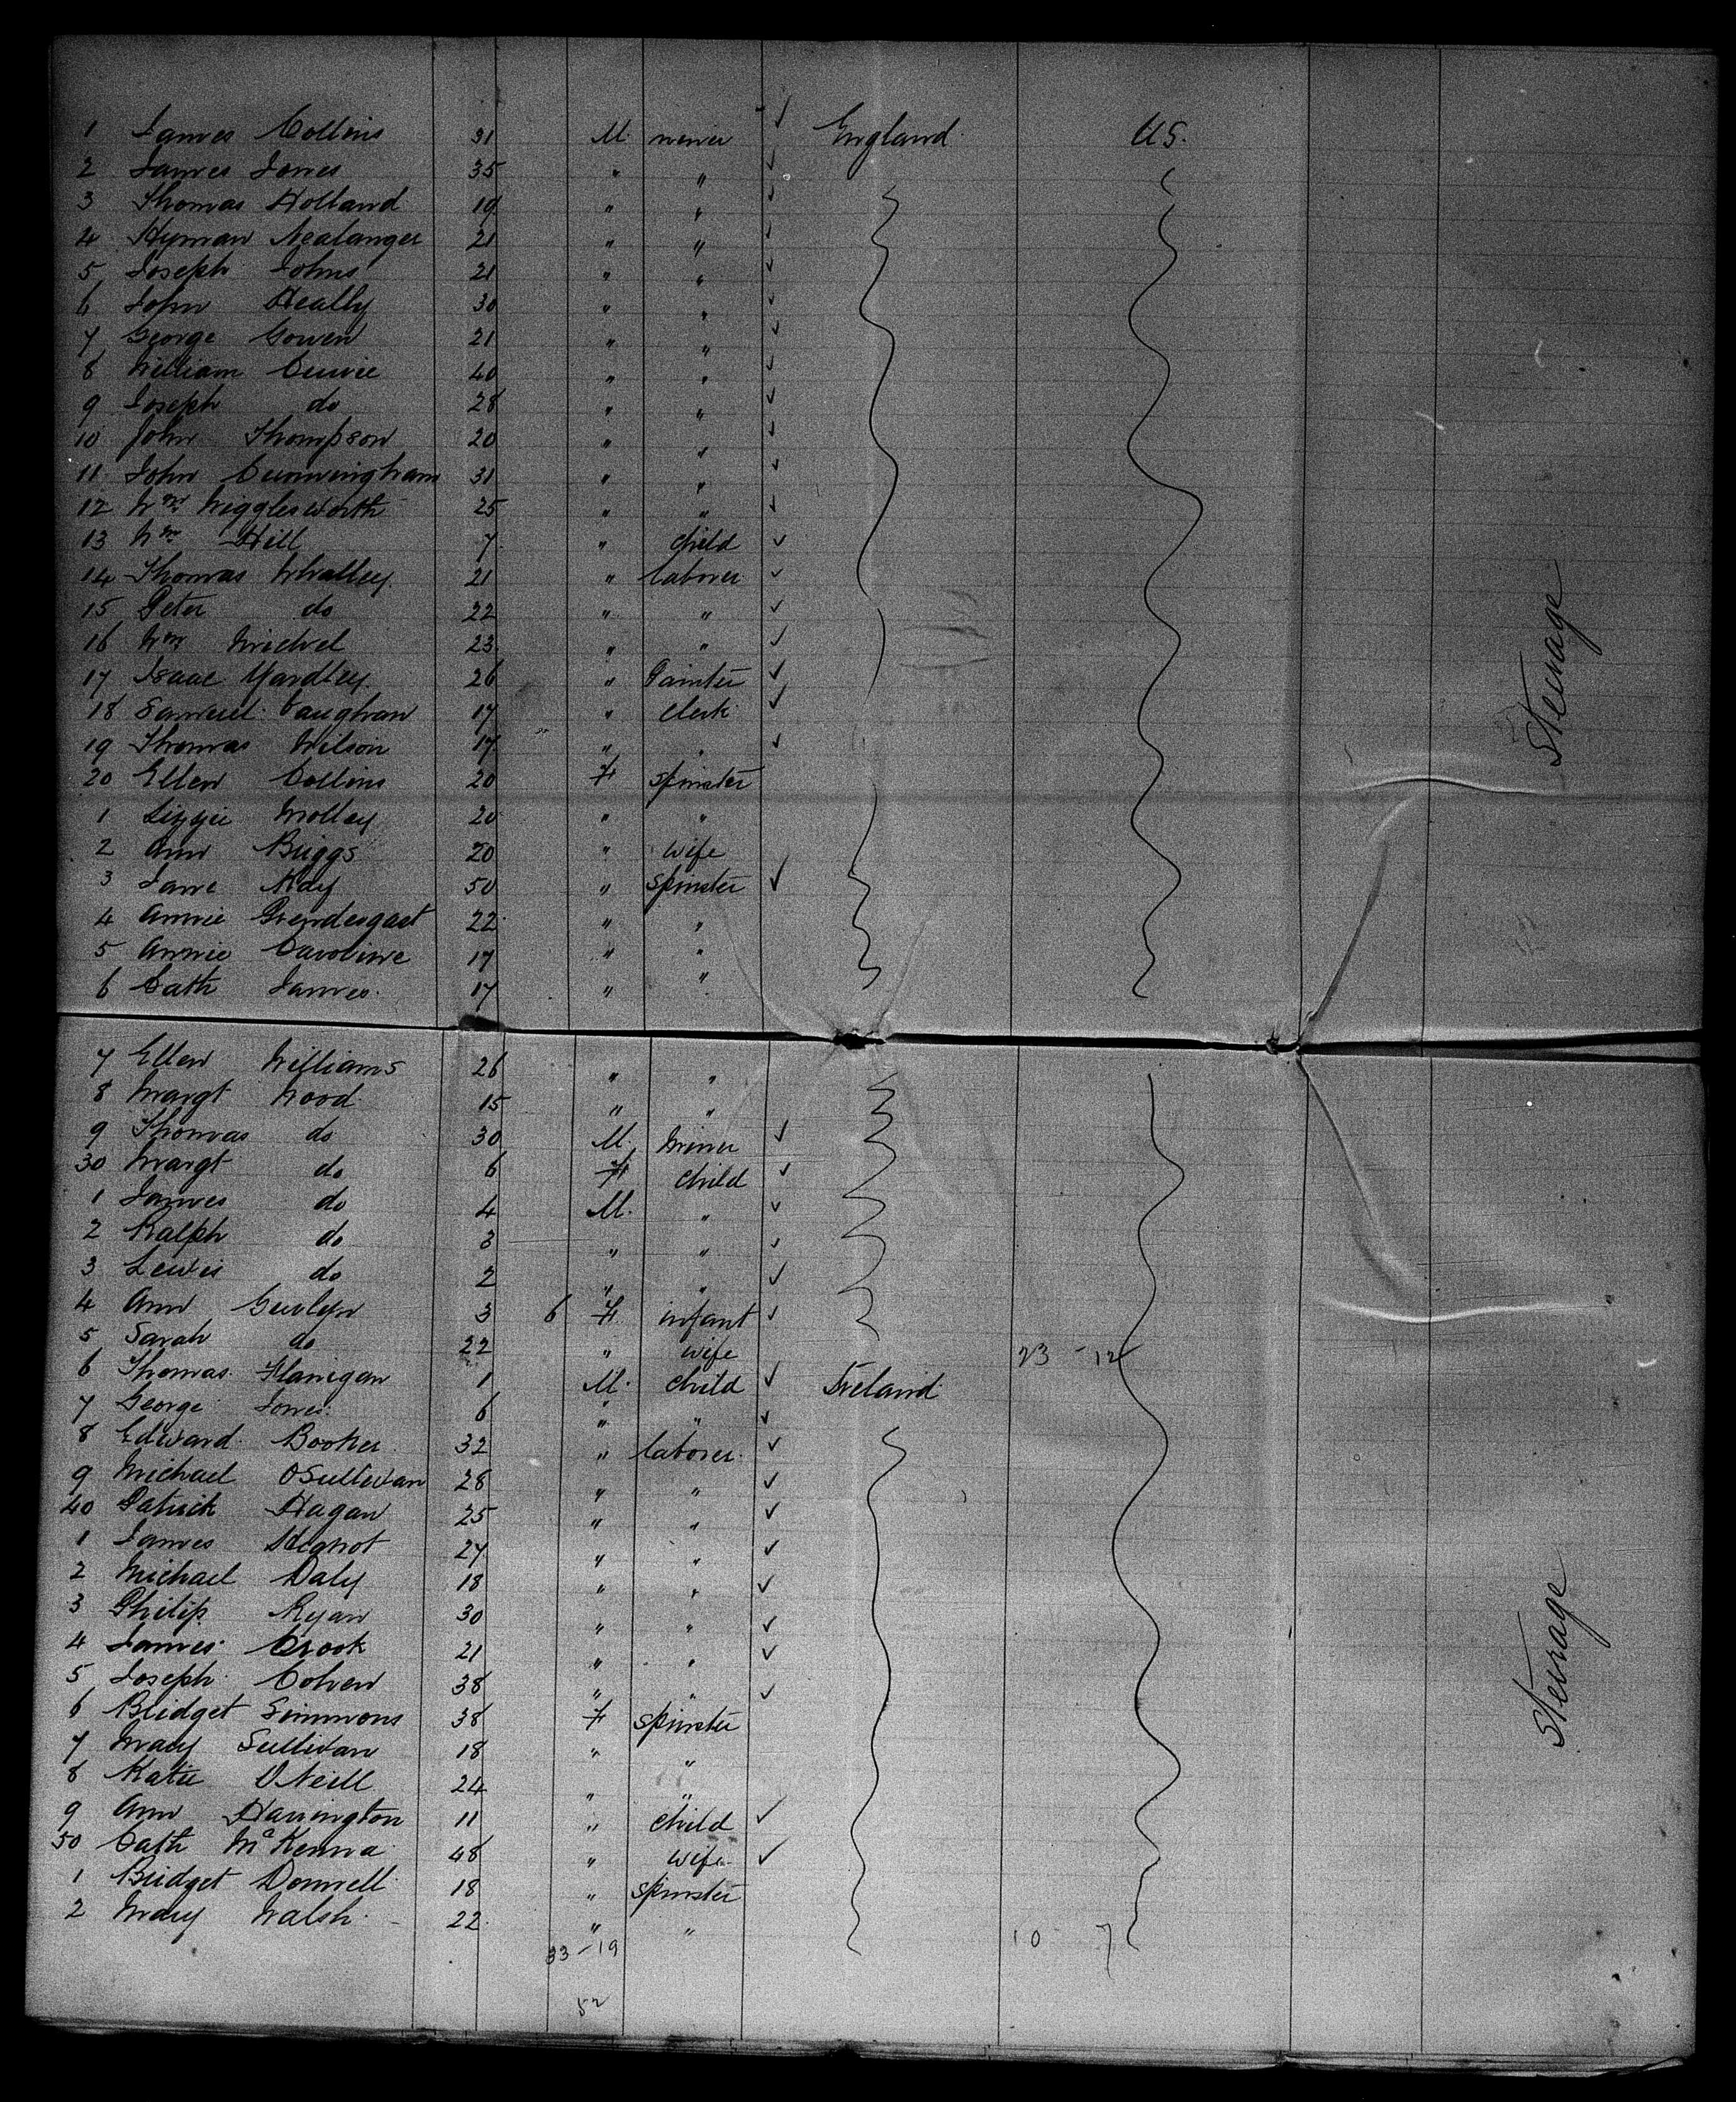 1 James Collins 31 M. miner ✓ England U.S.
2 James Jones 35 " " ✓
3 Thomas Holland 19 " " ✓
4 Hyman Nealanger 21 " " ✓
5 Joseph Johns 21 " " ✓
6 John Heally 30 " " ✓
7 George Gowen 21 " " ✓
8 William 40 " " ✓
9 Joseph do 28 " " ✓
10 John Thompson 20 " " ✓
11 John Cunningham 31 " " ✓
12 Wm Wigglesworth 25 " " ✓
13 Wm Hill 7 " child ✓
14 Thomas Whalley 21 " laborer ✓
15 Peter do 22 " " ✓
16 Wm Michel 23 " " ✓
17 Isaac Yardley 26 " Painter ✓
18 Samuel Vaughan 17 " clerk ✓
19 Thomas Wilson 17 " " ✓
20 Ellen Collins 20 F spinster
1 Lizzie Molley 20 " "
2 Ann Briggs 20 " wife
3 Jane Kay 50 " spinster ✓
4 Annie Prendergast 22 " "
5 Annie Caroline 17 " "
6 Cath James 17 " "
7 Ellen Williams 26 " "
8 Margt Wood 15 " "
9 Thomas do 30 M. Miner ✓
30 Margt do 6 F child ✓
1 James do 4 M. " ✓
2 Ralph do 3 " " ✓
3 Lewis do 2 " " ✓
4 Ann 3 6 F infant ✓
5 Sarah do 22 " wife 23 - 12
6 Thomas Flanigan 1 M. child ✓ Ireland
7 George Jones 6 " " ✓
8 Edward Booker 32 " laborer ✓
9 Michael OSullivan 28 " " ✓
40 Patrick Hagan 25 " " ✓
1 James 27 " " ✓
2 Michael Daly 18 " " ✓
3 Philip Ryan 30 " " ✓
4 James Crook 21 " " ✓
5 Joseph Cohen 38 " " ✓
6 Bridget Simmons 38 F spinster
7 Mary Sullivan 18 " "
8 Katie ONeill 24 " "
9 Ann Harrington 11 " child ✓
50 Cath McKenna 48 " wife ✓
1 Bridget Donnell 18 " spinster
2 Mary Walsh 22 " " 10 7
33 - 19
52
Steerage
Steerage